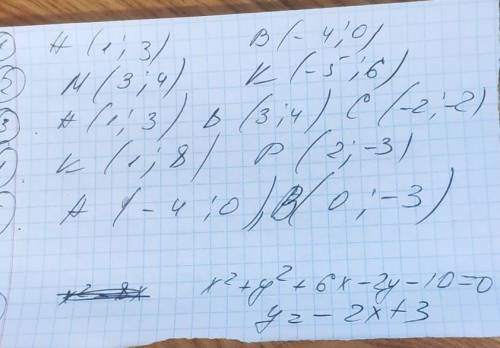 А (1; 3) В (-4; 0)
2 М (3; 4) К (-5; 6)
3 А (1; 3) В (3; 4) С (-2; -2)
К (1; 8) Р (2; -3)
А (-4; 0), В (0; -3)
x² - 8x x² + y² + 6x - 2y - 10 = 0
y = -2x + 3